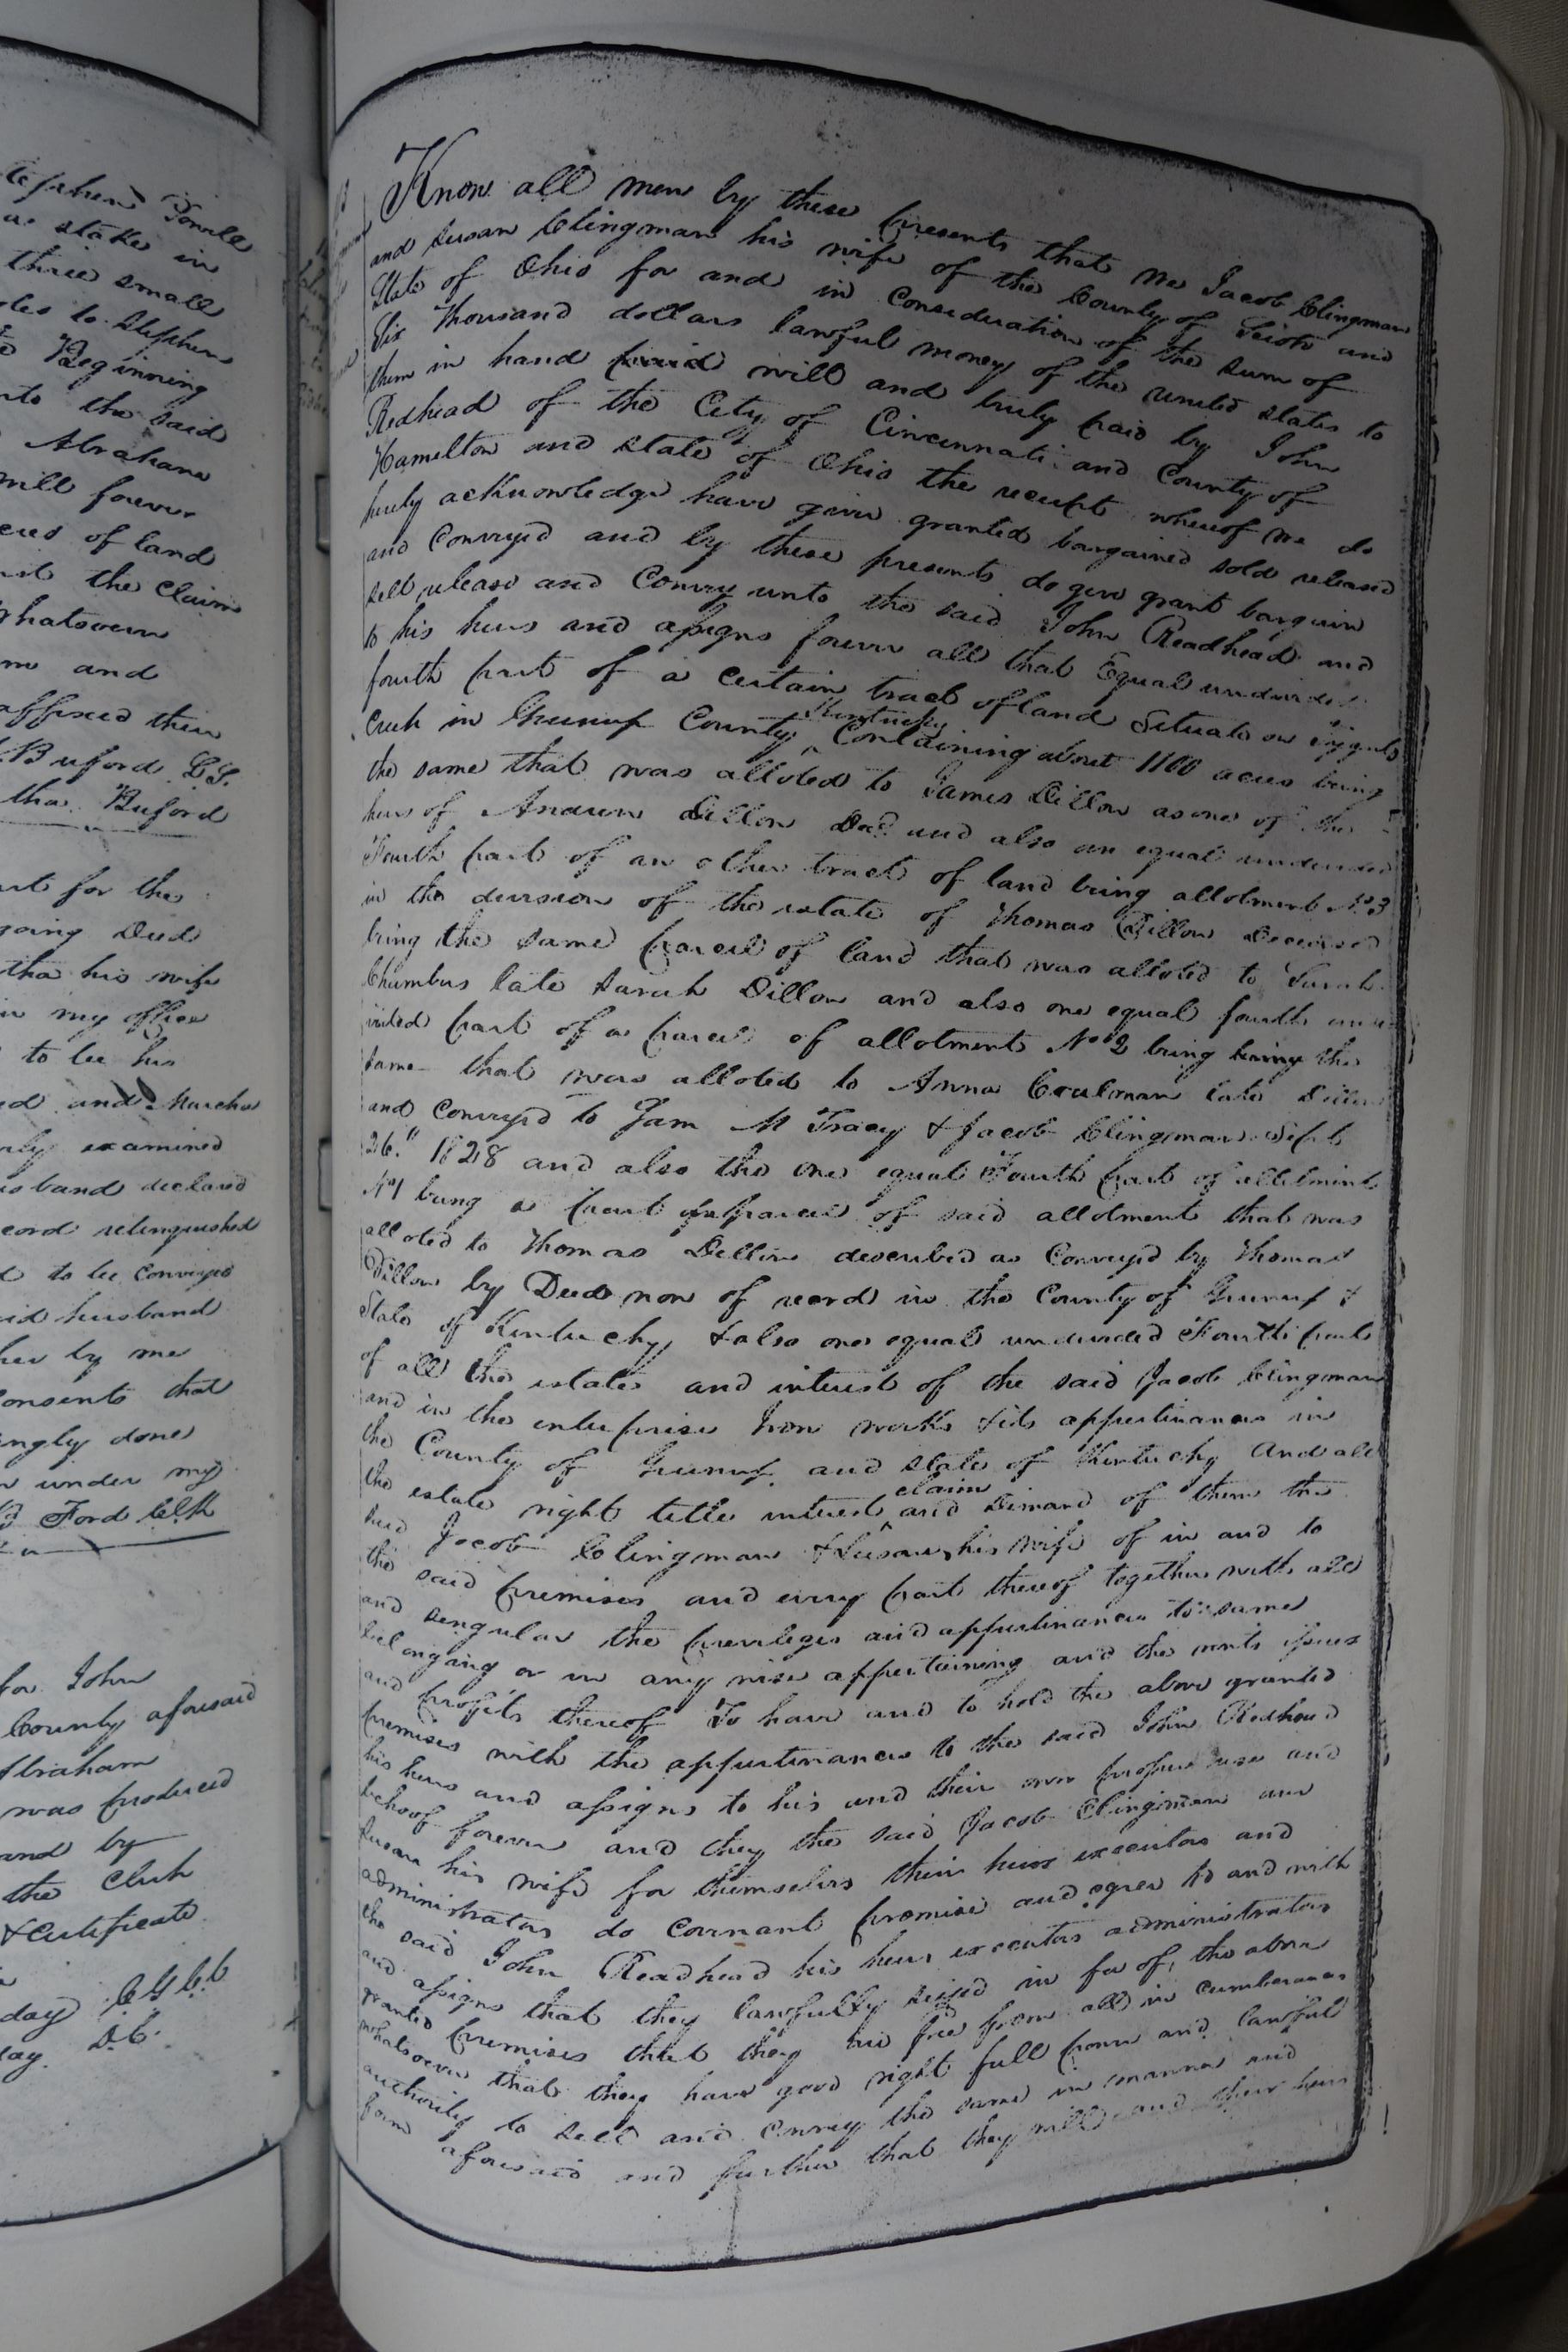 tephen Tonvill
a stake in
three small
gles to Stephen
to Beginning
nto the said
Abraham
will forever
cres of land
nst the claim
whatsoever
m and
affixed their
Buford L.S.
tha Buford
art for the
going Deed
tha his wife
in my office
to be his
ed and Marcha
ly examined
usband declared
cord relinquished
d to be Conveyed
said husband
her by me
onsents that
ingly done
under my
Ford Clk
for John
County aforesaid
Abraham
was produced
and by
the Clerk
& Certificate
day
day D.C.
Know all men by these presents that we Jacob Clingman
and Susan Clingman his wife of the County of Scioto and
State of Ohio for and in Consideration of the sum of
Six Thousand dollars lawful money of the united states to
them in hand paid will and truly paid by John
Redhead of the City of Cincinnati and County of
Hamelton and state of Ohio the receipt whereof we do
herely acknowledge have given granted bargained sold released
and Conveyed and by these presents do give grant bargain
sell release and Convey unto the said John Readhead and
to his heirs and assigns forever all that Equal undivided
fourth part of a certain tract of land Situate on
Creek in Greenup County Kentucky Containing about 1100 acres being
the same that was alloted to James Dillon as one of the
heirs of Andrew Dillon Decd and also an equal undivided
Fourth part of an other tract of land being allotment No 3
in the devision of the estate of Thomas Dillon Deceased
being the same parcel of land that was alloted to Sarah
Chumbus late Sarah Dillon and also one equal fourth und
ivided part of a parcel of allotment No 2 being the
same that was alloted to Anna Coulman late Dillon
and Conveyed to Jam M Tracy & Jacob Clingman Sept
26th 1828 and also the one equal Fourth part of allotment
No 1 being a part of said allotment that was
alloted to Thomas Dillon described as Conveyed by Thomas
Dillon by Deed now of record in the County of Greenup &
State of Kentucky & also one equal undivided Fourth part
of all the estate and interest of the said Jacob Clingman
and in the enterprise Iron works & its appertinances in
the County of Greenup and state of Kentucky And all
the estate right title interest claim and Demand of them the
said Jacob Clingman & Susan his wife of in and to
the said premises and every part thereof together with all
and singular the previleges and appertinances to same
belonging or in any wise appertaining and the rents issues
and profits thereof To have and to hold the above granted
premises with the appertinances to the said John Redhead
his heirs and assigns to his and their own proper use and
behoof forever and they the said Jacob Clingman and
Susan his wife for themselves their heirs executors and
administrators do covenant promise and agree to and with
the said John Readhead his heirs executors administrators
and assigns that they lawfully seized in fee of the above
granted premises that they are free from all in cumberances
whatsoever that they have good right full power and lawful
authority to sell and convey the same in manner and
form aforesaid and further that they will and their heirs